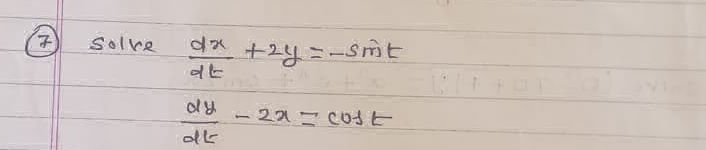 (7) Solve dx/dt + 2y = -sint
dy/dt - 2x = cost